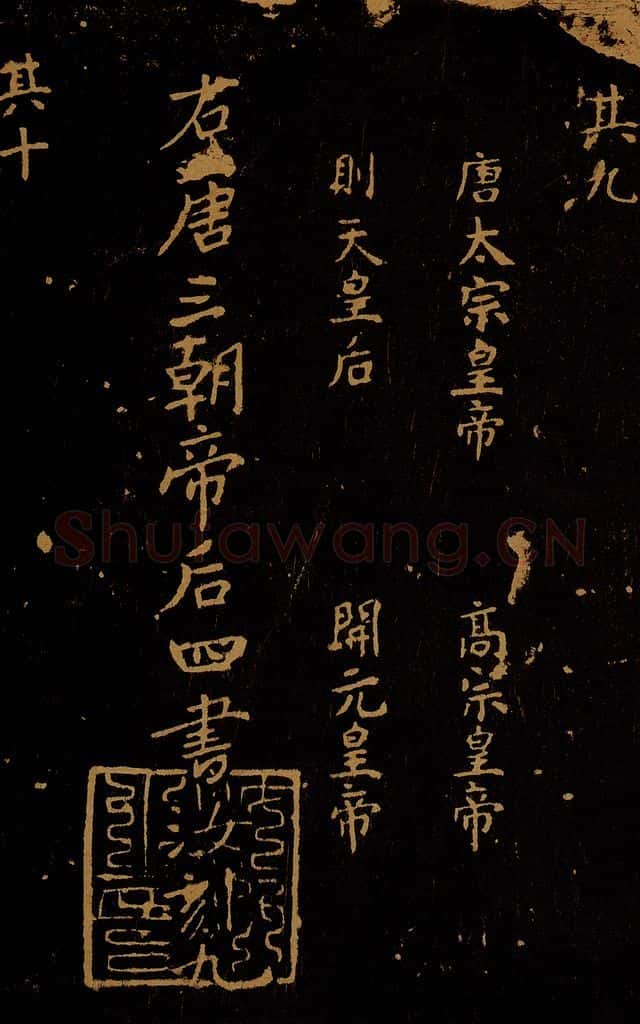 其九
唐太宗皇帝 高宗皇帝
則天皇后 開元皇帝
右唐三朝帝后四書
汝刻九
其十
Shufawang.CN